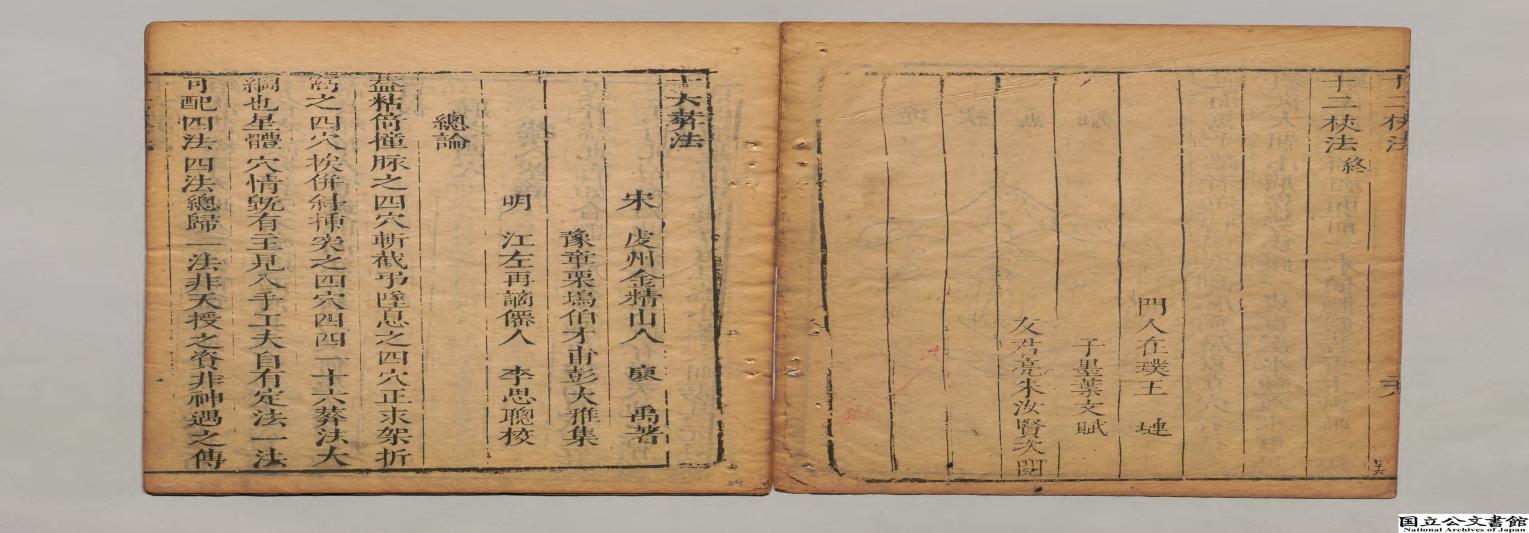 十二杖法
十二杖法終
門人在璞王 璉
子墨葉文賦
友君亮朱汝賢次閱
十六葬法
宋 虔州金精山人 廖 禹著
豫章栗塢伯才甫彭大雅集
明 江左再謫僊人 李思聰校
總論
蓋粘倚撞脉之四穴斬截弔墜息之四穴正求架折
窩之四穴挨併斜插突之四穴四四一十六葬法大
綱也星體穴情既有主見入手工夫自有定法一法
可配四法四法總歸一法非天授之資非神遇之傳
国立公文書館
National Archives of Japan